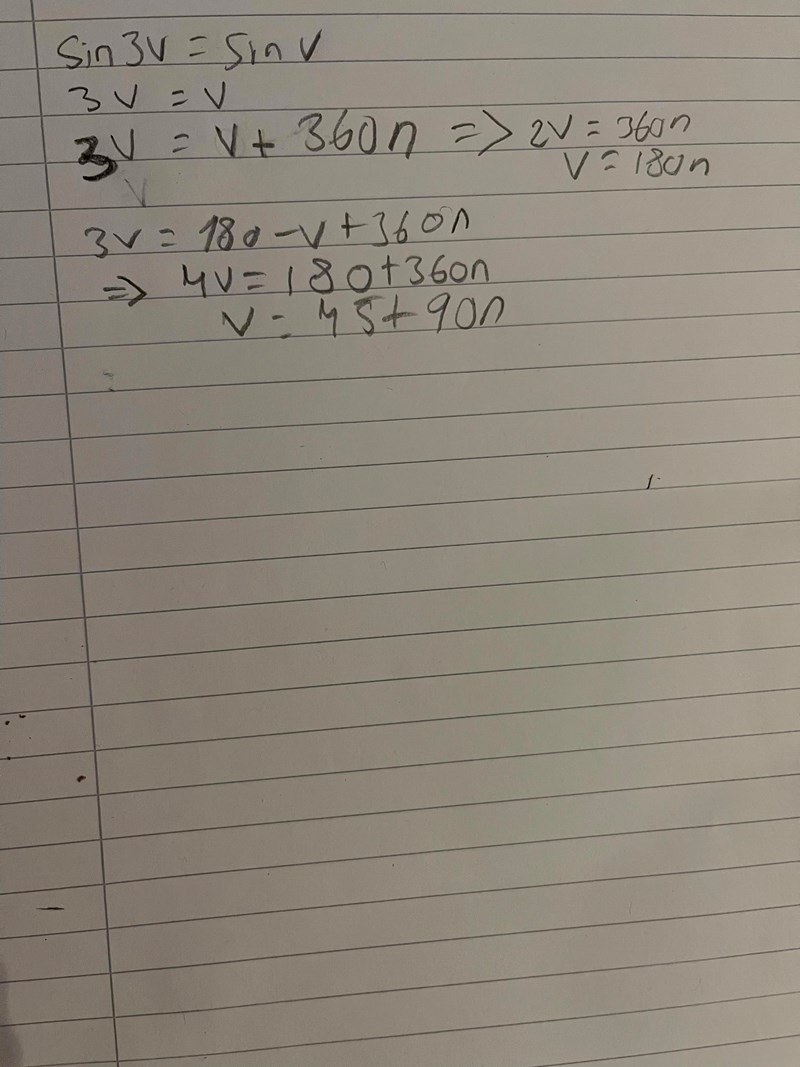 Sin 3V = Sin V
3V = V
3V = V + 360n => 2V = 360n
V = 180n
V
3V = 180 - V + 360n
=> 4V = 180 + 360n
V = 45 + 90n